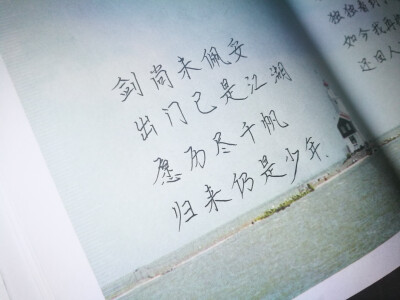 剑尚未佩妥
出门已是江湖
愿历尽千帆
归来仍是少年